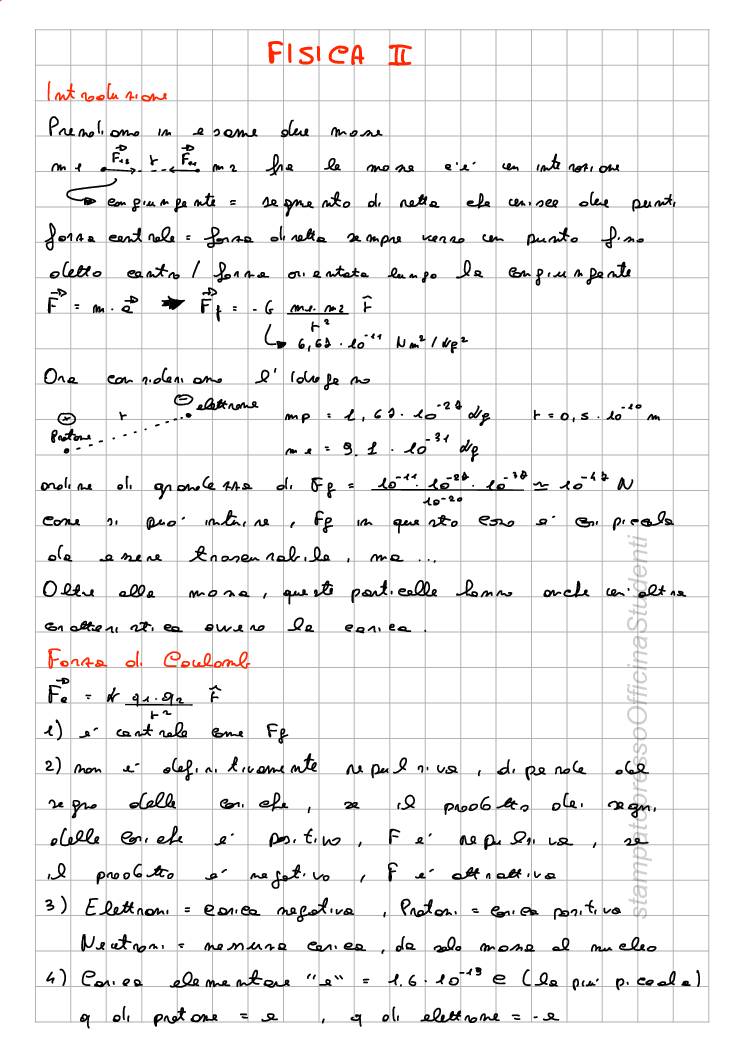 FISICA II
Introduzione
Prendiamo in esame due masse
m1 F12 r F21 m2 fra le masse c'è un interazione
congiungente = segmento di retta che unisce due punti
forza centrale = forza diretta sempre verso un punto fisso
detto centro / forza orientata lungo la congiungente
F = m · a → Fg = - G m1 · m2 / r² r̂
6,67 · 10⁻¹¹ Nm²/kg²
Ora consideriamo l'idrogeno
⊖ elettrone mp = 1,67 · 10⁻²⁷ kg r = 0,5 · 10⁻¹⁰ m
protone r me = 9,1 · 10⁻³¹ kg
ordine di grandezza di Fg = 10⁻¹¹ · 10⁻²⁷ · 10⁻³⁰ / 10⁻²⁰ ≃ 10⁻⁴⁷ N
come si può intuire, Fg in questo caso è così piccola
da essere trascurabile, ma ...
Oltre alla massa, queste particelle hanno anche un'altra
caratteristica ovvero la carica.
Forza di Coulomb
Fe = k q1 · q2 / r² r̂
1) è centrale come Fg
2) non è definitivamente repulsiva, dipende dal
segno delle cariche, se il prodotto dei segni
delle cariche è positivo, F è repulsiva, se
il prodotto è negativo, F è attrattiva
3) Elettroni = carica negativa, Protoni = carica positiva
Neutroni = nessuna carica, da solo massa al nucleo
4) Carica elementare "e" = 1,6 · 10⁻¹⁹ C (la più piccola)
q di protone = e , q di elettrone = -e
stampatopressoOfficinaStudenti